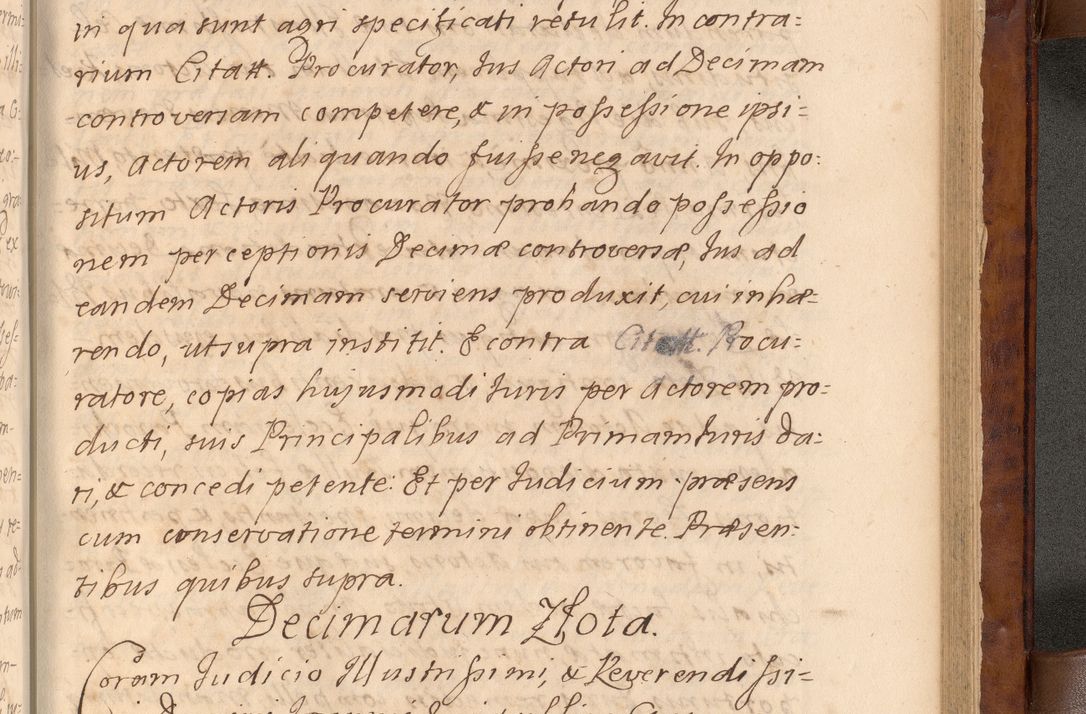 in qua sunt agri specificati retulit. In contra=
rium Citatt. Procurator, Jus Actori ad Decimam
controversam competere, & in possessione ipsi=
us, Actorem aliquando fuisse negavit. In oppo:
situm Actoris Procurator probando possessio
nem perceptionis Decimæ controversæ, Jus ad
eandem Decimam serviens produxit, cui inhæ=
rendo, ut supra institit. E contra Citatt. Procu=
ratore, copias hujusmodi Juris per Actorem pro=
ducti, suis Principalibus ad Primam Juris da=
ri, & concedi petente: Et per Judicium præsens
cum conservatione termini obtinente. Præsen=
tibus quibus supra.
Decimarum Złota.
Coram Judicio Illustrissimi, & Reverendissi=